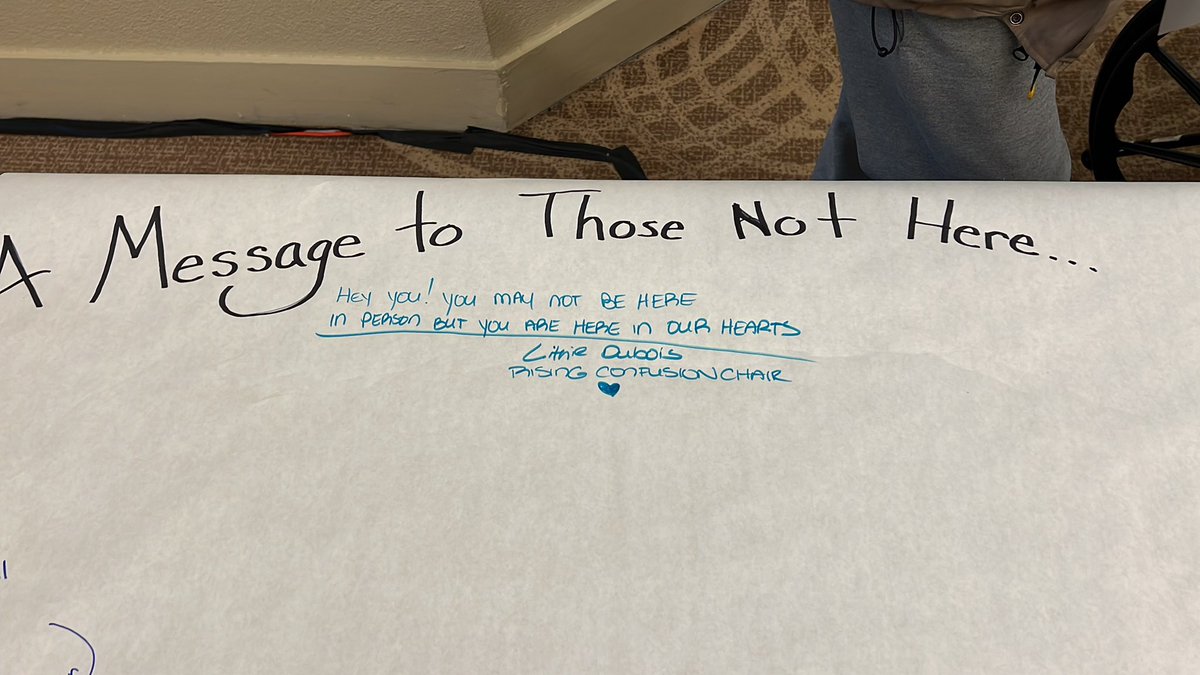 A Message to Those Not Here...
HEY YOU! YOU MAY NOT BE HERE
IN PERSON BUT YOU ARE HERE IN OUR HEARTS
Dubois
RISING CONFUSION CHAIR